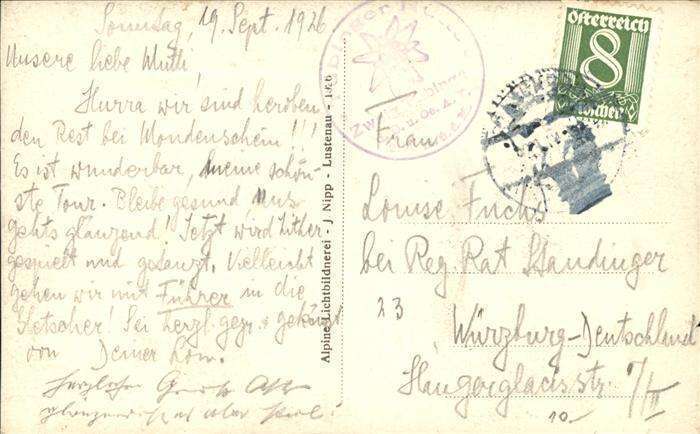 Sonntag, 19. Sept. 1926
Unsere liebe Mutti,
Hurra wir sind heroben
den Rest bei Mondenschein!!!
Es ist wunderbar, meine schön-
ste Tour. Bleibe gesund, uns
gehts glänzend! Jetzt wird Zither
gespielt und getanzt. Vielleicht
gehen wir mit Führer in die
Gletscher! Sei herzl. gegr. + geküsst
von Deiner
Herzliche
Alpine Lichtbildnerei - J Nipp - Lustenau - 1926
Österreich
8
Groschen
Frau
Louise Fuchs
bei Reg. Rat Standinger
23
Würzburg-Deutschland
Haugerglacisstr. 7/II
10.-